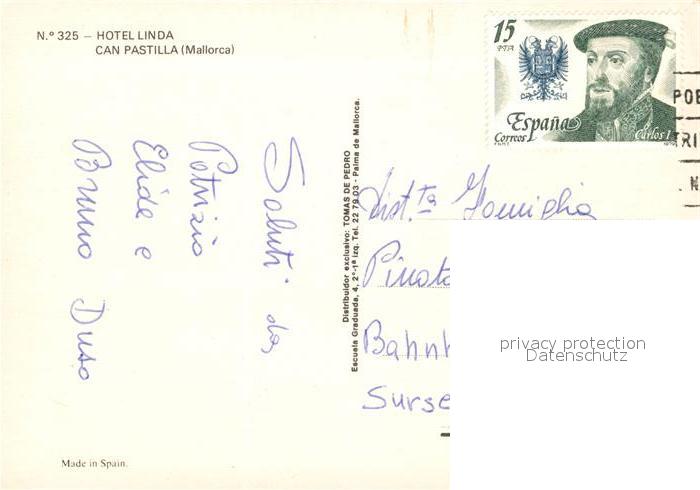 N.º 325 – HOTEL LINDA
CAN PASTILLA (Mallorca)
15
PTA
España
Correos
Carlos I
Saluti da
Patrizia
Elide e
Bruno Duso
Distribuidor exclusivo: TOMAS DE PEDRO
Escuela Graduada, 4, 2º-1ª izq. Tel. 22 79 03 - Palma de Mallorca.
Dist.ta Famiglia
Bahnh
Surse
privacy protection
Datenschutz
Made in Spain.